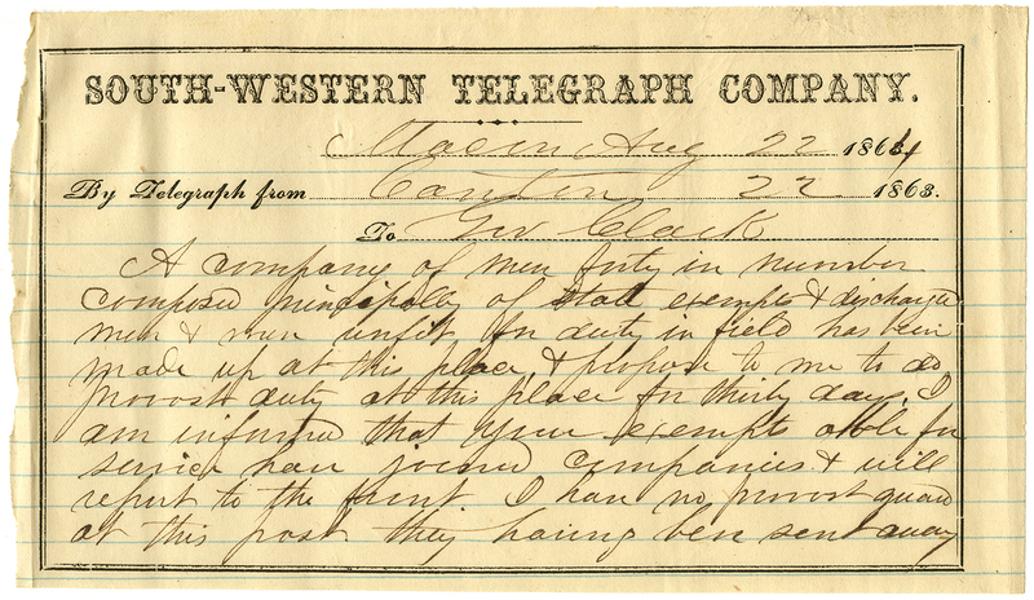 SOUTH-WESTERN TELEGRAPH COMPANY.
Macon Aug 22 1864
By Telegraph from Canton 22 1863.
To Gov Clark
A company of men forty in number
composed principally of State exempts & discharged
men & men unfit for duty in field has been
made up at this place, & propose to me to do
Provost duty at this place for thirty days. I
am informed that your exempts able for
service have joined companies & will
report to the front. I have no provost guard
at this post they having been sent away